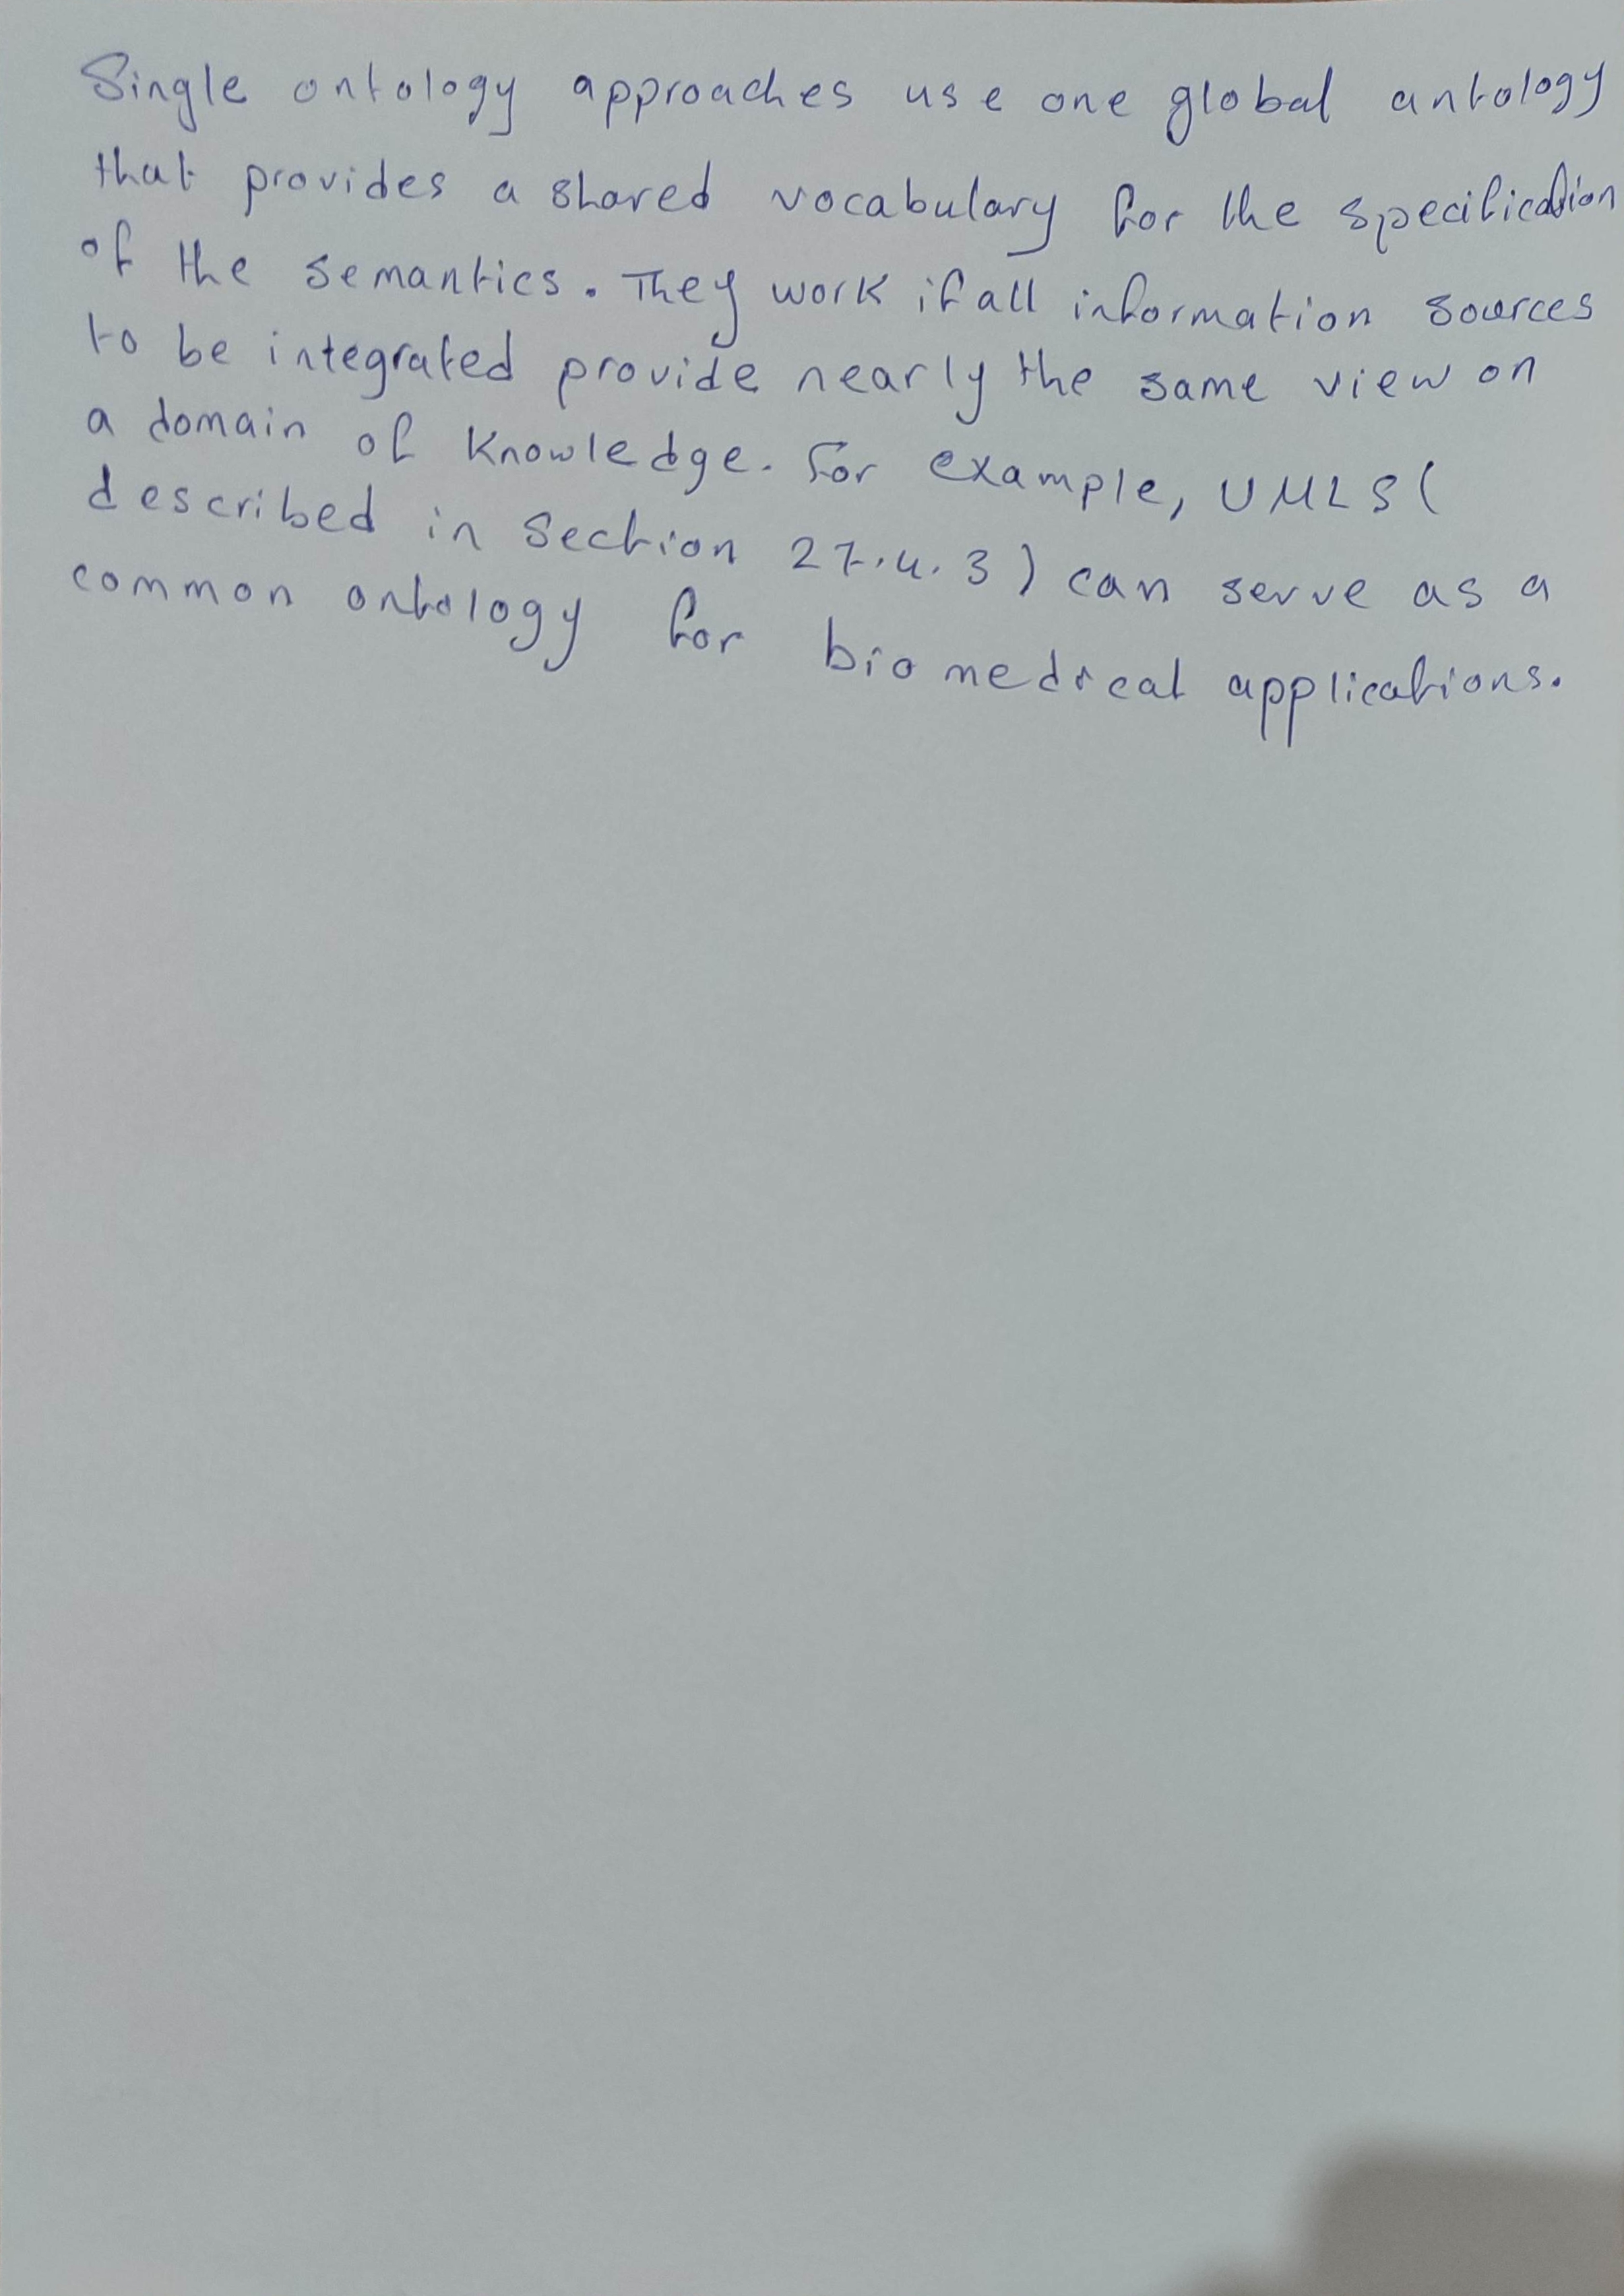 Single ontology approaches use one global antology
that provides a shared vocabulary for the specification
of the semantics. They work if all information sources
to be integrated provide nearly the same view on
a domain of knowledge. For example, UMLS (
described in Section 27.4.3) can serve as a
common ontology for biomedical applications.